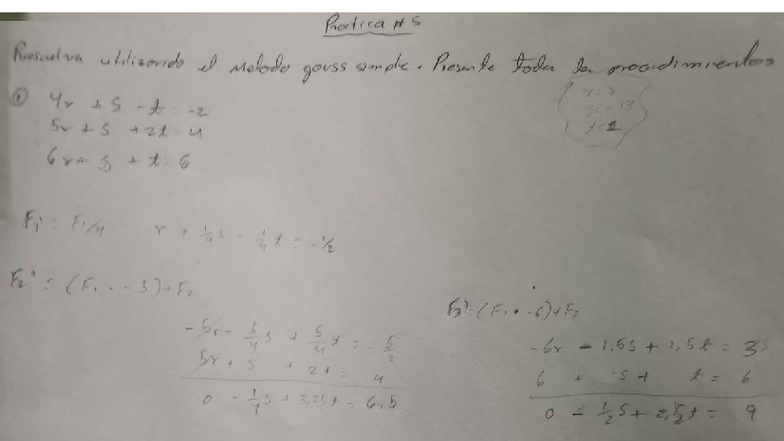 Practica # 5
Resuelva utilizando el metodo gauss simple. Presente todos los procedimientos
① 4r + s - t = -2
5r + s + 2t = 4
6r + s + t = 6
r = 3
s = -13
t = 1
F₁' = F₁/4 r + 1/4 s - 1/4 t = -1/2
F₂' = (F₁ · -5) + F₂
-5r - 5/4 s + 5/4 t = 5/2
5r + s + 2t = 4
0 - 1/4 s + 3,25t = 6,5
F₃' = (F₁ · -6) + F₃
-6r - 1,5s + 1,5t = 3
6 + s + t = 6
0 - 1/2 s + 2,5t = 9